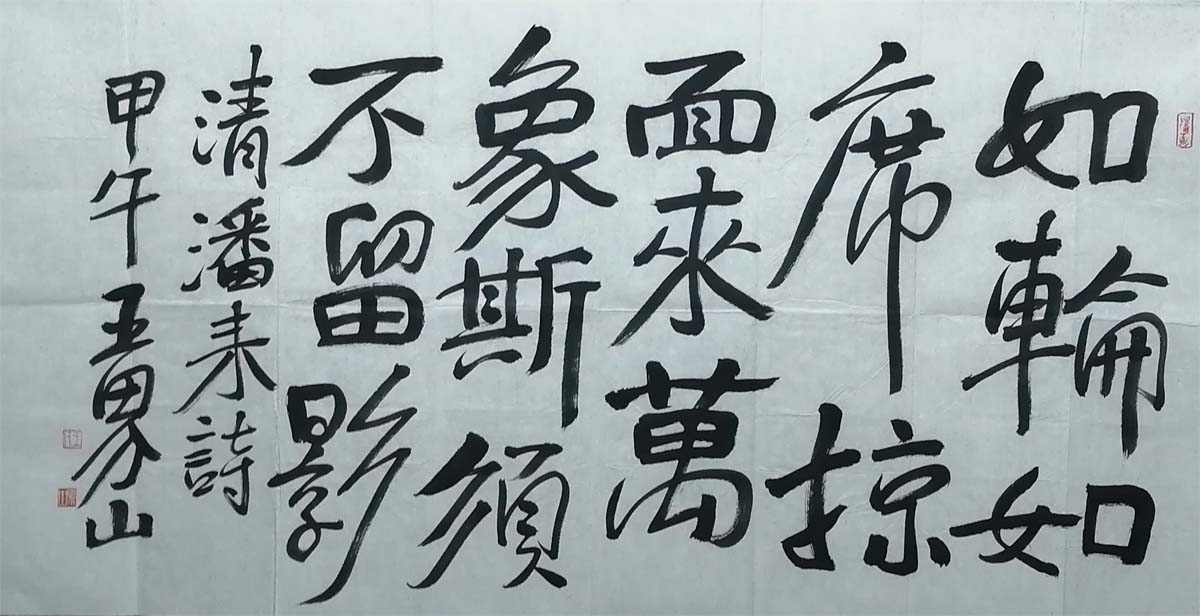 如輪如
席掠
面來萬
象斯須
不留影
清潘耒詩
甲午王男山